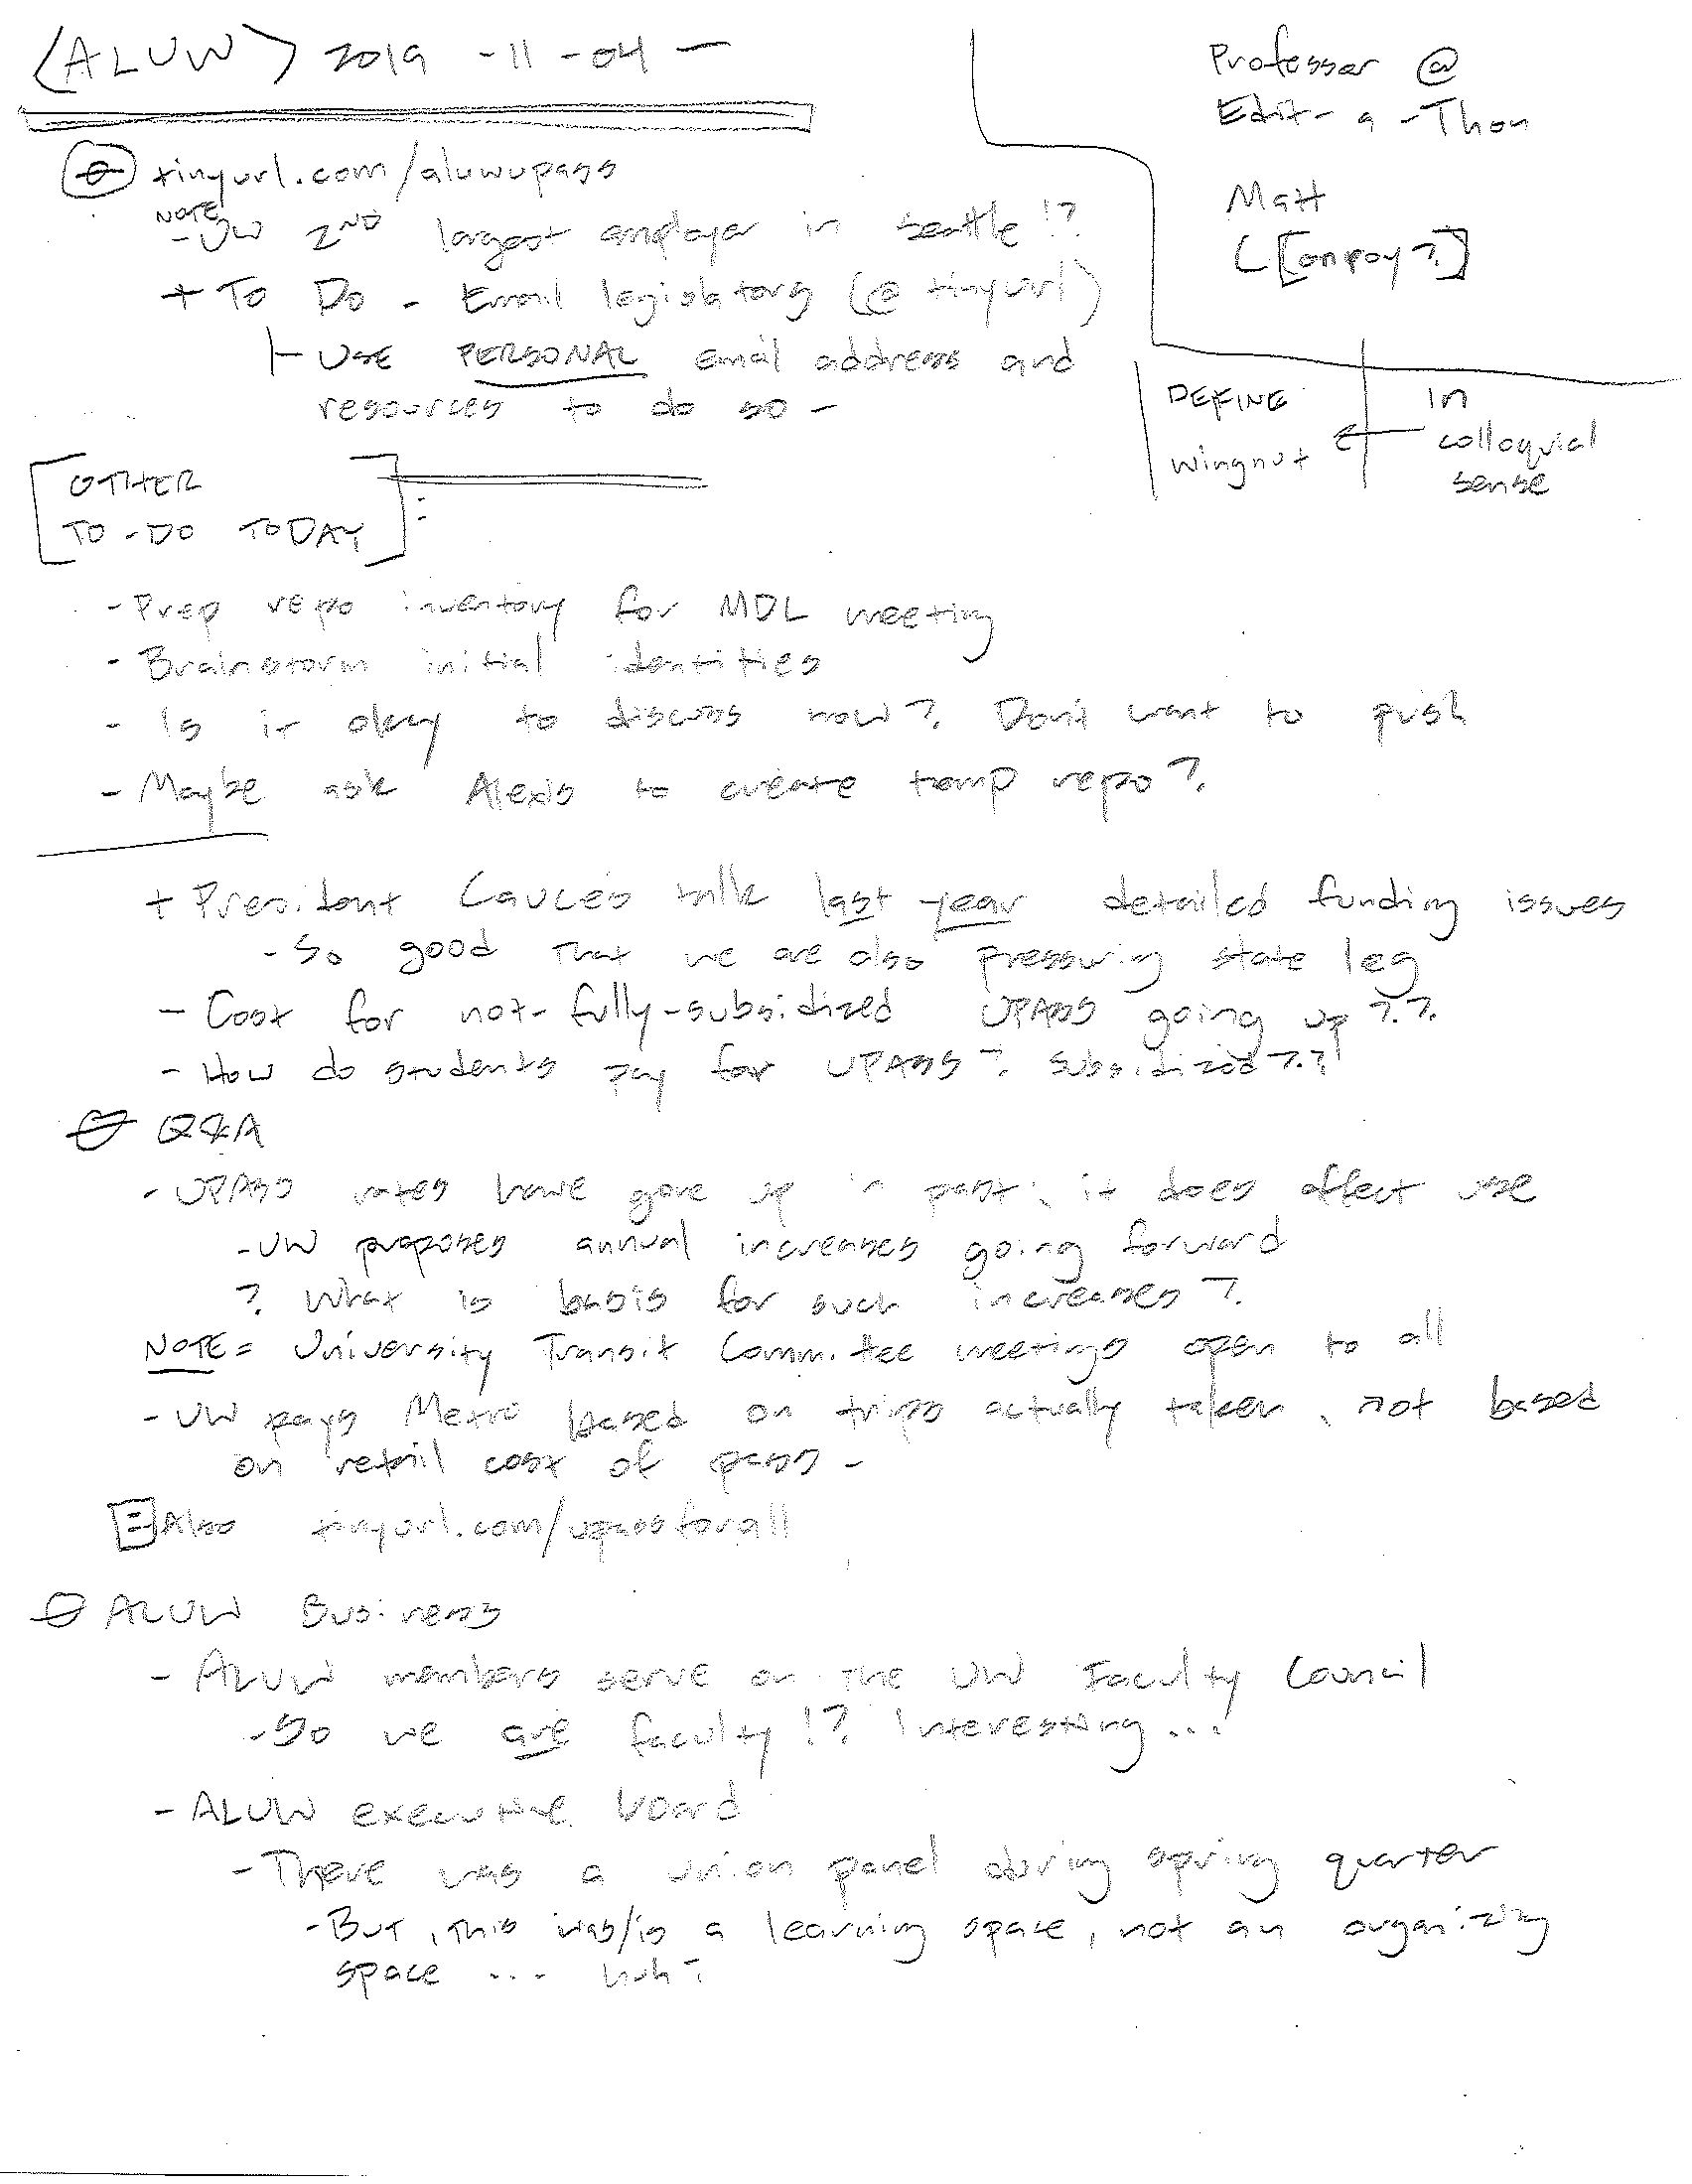 (ALUW) 2019-11-04 —
tinyurl.com/aluwupass
NOTE
- UW 2ND largest employer in Seattle!?
+ To Do - Email legislators (@ tinyurl)
USE PERSONAL email address and
resources to do so -
Professor @
Edit-a-Thon
Matt
DEFINE
wingnut
in
colloquial
sense
[OTHER
TO-DO TODAY]:
- Prep repo inventory for MDL meeting
- Brainstorm initial identities
- Is it okay to discuss now? Don't want to push
- Maybe ask Alexis to create temp repo?
+ President Cauce's talk last year detailed funding issues
- So good that we are also pressuring state leg
- Cost for not-fully-subsidized UPASS going up??
- How do students pay for UPASS? Subsidized??
Q&A
- UPASS rates have gone up in past, it does affect use
- UW proposes annual increases going forward
? What is basis for such increases?
NOTE = University Transit Committee meetings open to all
- UW pays Metro based on trips actually taken, not based
on retail cost of pass -
Also tinyurl.com/upassforall
ALUW Business
- ALUW members serve on the UW Faculty Council
- So we are faculty!? Interesting...
- ALUW executive board
- There was a union panel during spring quarter
- But, this was/is a learning space, not an organizing
space ... huh?